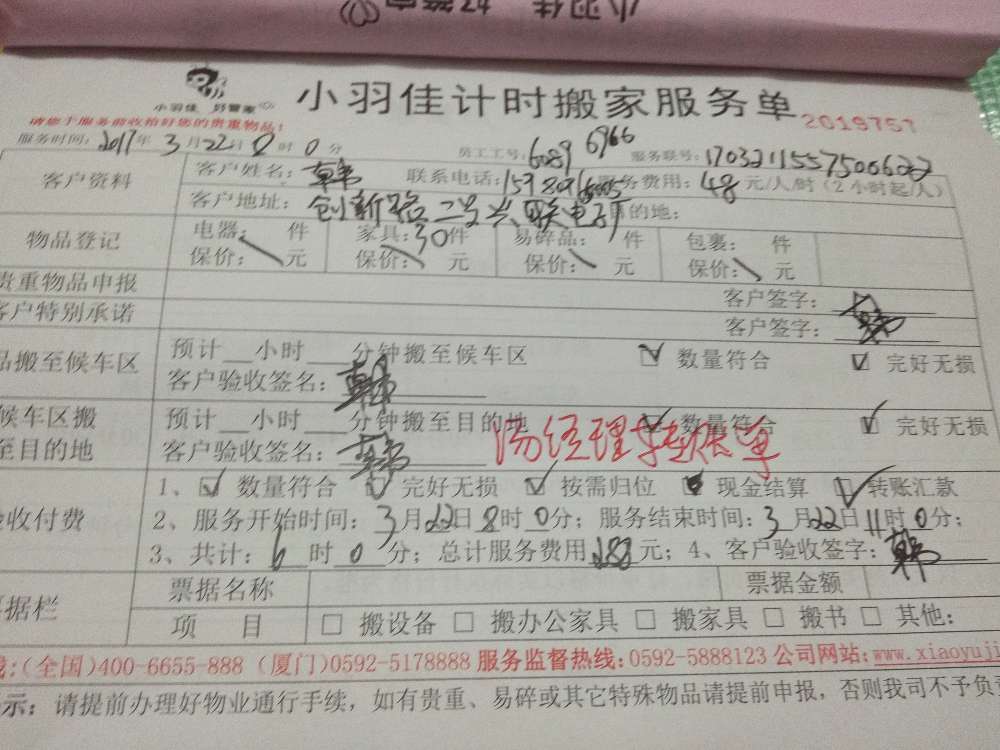 小羽佳 好管家
小羽佳计时搬家服务单
2019757
请您于服务前收拾好您的贵重物品!
服务时间: 2017年 3月22日8时0分 员工工号: 6089 6966 服务联号:
客户资料
客户姓名: 韩 联系电话: 服务费用: 48元/人/时(2小时起/人)
客户地址: 创新路二号兴联电子 目的地:
物品登记
电器: 件 家具: 30件 易碎品: 件 包裹: 件
保价: 元 保价: 元 保价: 元 保价: 元
贵重物品申报 客户签字:
客户特别承诺 客户签字: 韩
品搬至候车区
预计 小时 分钟搬至候车区 数量符合 完好无损
客户验收签名: 韩
候车区搬
至目的地
预计 小时 分钟搬至目的地 数量符合 完好无损
客户验收签名: 韩 汤经理转账单
验收付费
1、 数量符合 完好无损 按需归位 现金结算 转账汇款
2、服务开始时间: 3月22日8时0分; 服务结束时间: 3月22日11时0分;
3、共计: 6时0分; 总计服务费用288元; 4、客户验收签字: 韩
票据栏
票据名称 票据金额
项 目 □ 搬设备 □ 搬办公家具 □ 搬家具 □ 搬书 □ 其他:
(全国)400-6655-888 (厦门)0592-5178888 服务监督热线:0592-5888123 公司网站:www.xiaoyuji
示: 请提前办理好物业通行手续, 如有贵重、易碎或其它特殊物品请提前申报, 否则我司不予负责